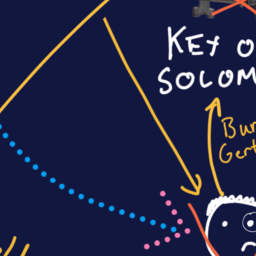 KEY O
SOLOM
Bur
Gert